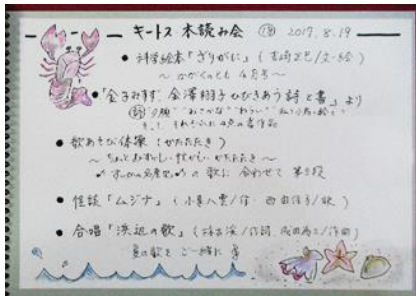 キートス 本読み会 2017.8.19
● 科学絵本「ざりがに」(吉崎正巳/文・絵)
～ かがくのとも 4月号～
●「金子みすゞ 金澤翔子 ひびきあう詩と書」より
● 歌あそび体操(かたたたき)
～ ちょっとむずかしい 忙がしい かたたたき ～
の歌に 合わせて 第2段
● 怪談「ムジナ」(小泉八雲/作
● 合唱「浜辺の歌」(林古渓/作詞、成田為三/作曲)
夏の歌を ご一緒に